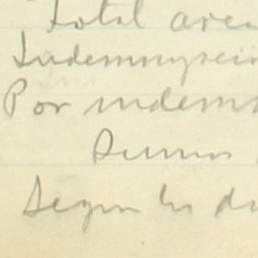 Total area
Indemnizació
Por indemn
Suman
Segun los d